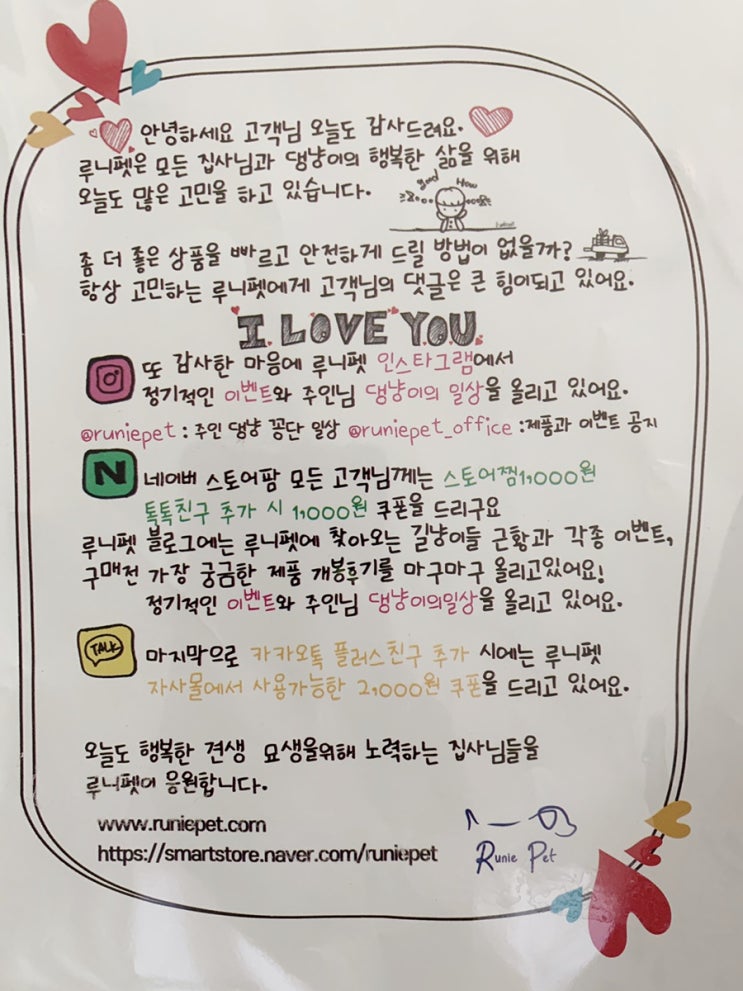 안녕하세요 고객님 오늘도 감사드려요.
루니펫은 모든 집사님과 댕냥이의 행복한 삶을 위해
오늘도 많은 고민을 하고 있습니다.
good How
좀 더 좋은 상품을 빠르고 안전하게 드릴 방법이 없을까?
항상 고민하는 루니펫에게 고객님의 댓글은 큰 힘이되고 있어요.
I LOVE YOU
또 감사한 마음에 루니펫 인스타그램에서
정기적인 이벤트와 주인님 댕냥이의 일상을 올리고 있어요.
@runiepet : 주인 댕냥 꽁단 일상 @runiepet_office :제품과 이벤트 공지
N 네이버 스토어팜 모든 고객님께는 스토어찜1,000원
톡톡친구 추가 시 1,000원 쿠폰을 드리구요
루니펫 블로그에는 루니펫에 찾아오는 길냥이들 근황과 각종 이벤트,
구매전 가장 궁금한 제품 개봉후기를 마구마구 올리고있어요!
정기적인 이벤트와 주인님 댕냥이의일상을 올리고 있어요.
TALK 마지막으로 카카오톡 플러스친구 추가 시에는 루니펫
자사몰에서 사용가능한 2,000원 쿠폰을 드리고 있어요.
오늘도 행복한 견생 묘생을위해 노력하는 집사님들을
루니펫이 응원합니다.
www.runiepet.com
https://smartstore.naver.com/runiepet
Runie Pet